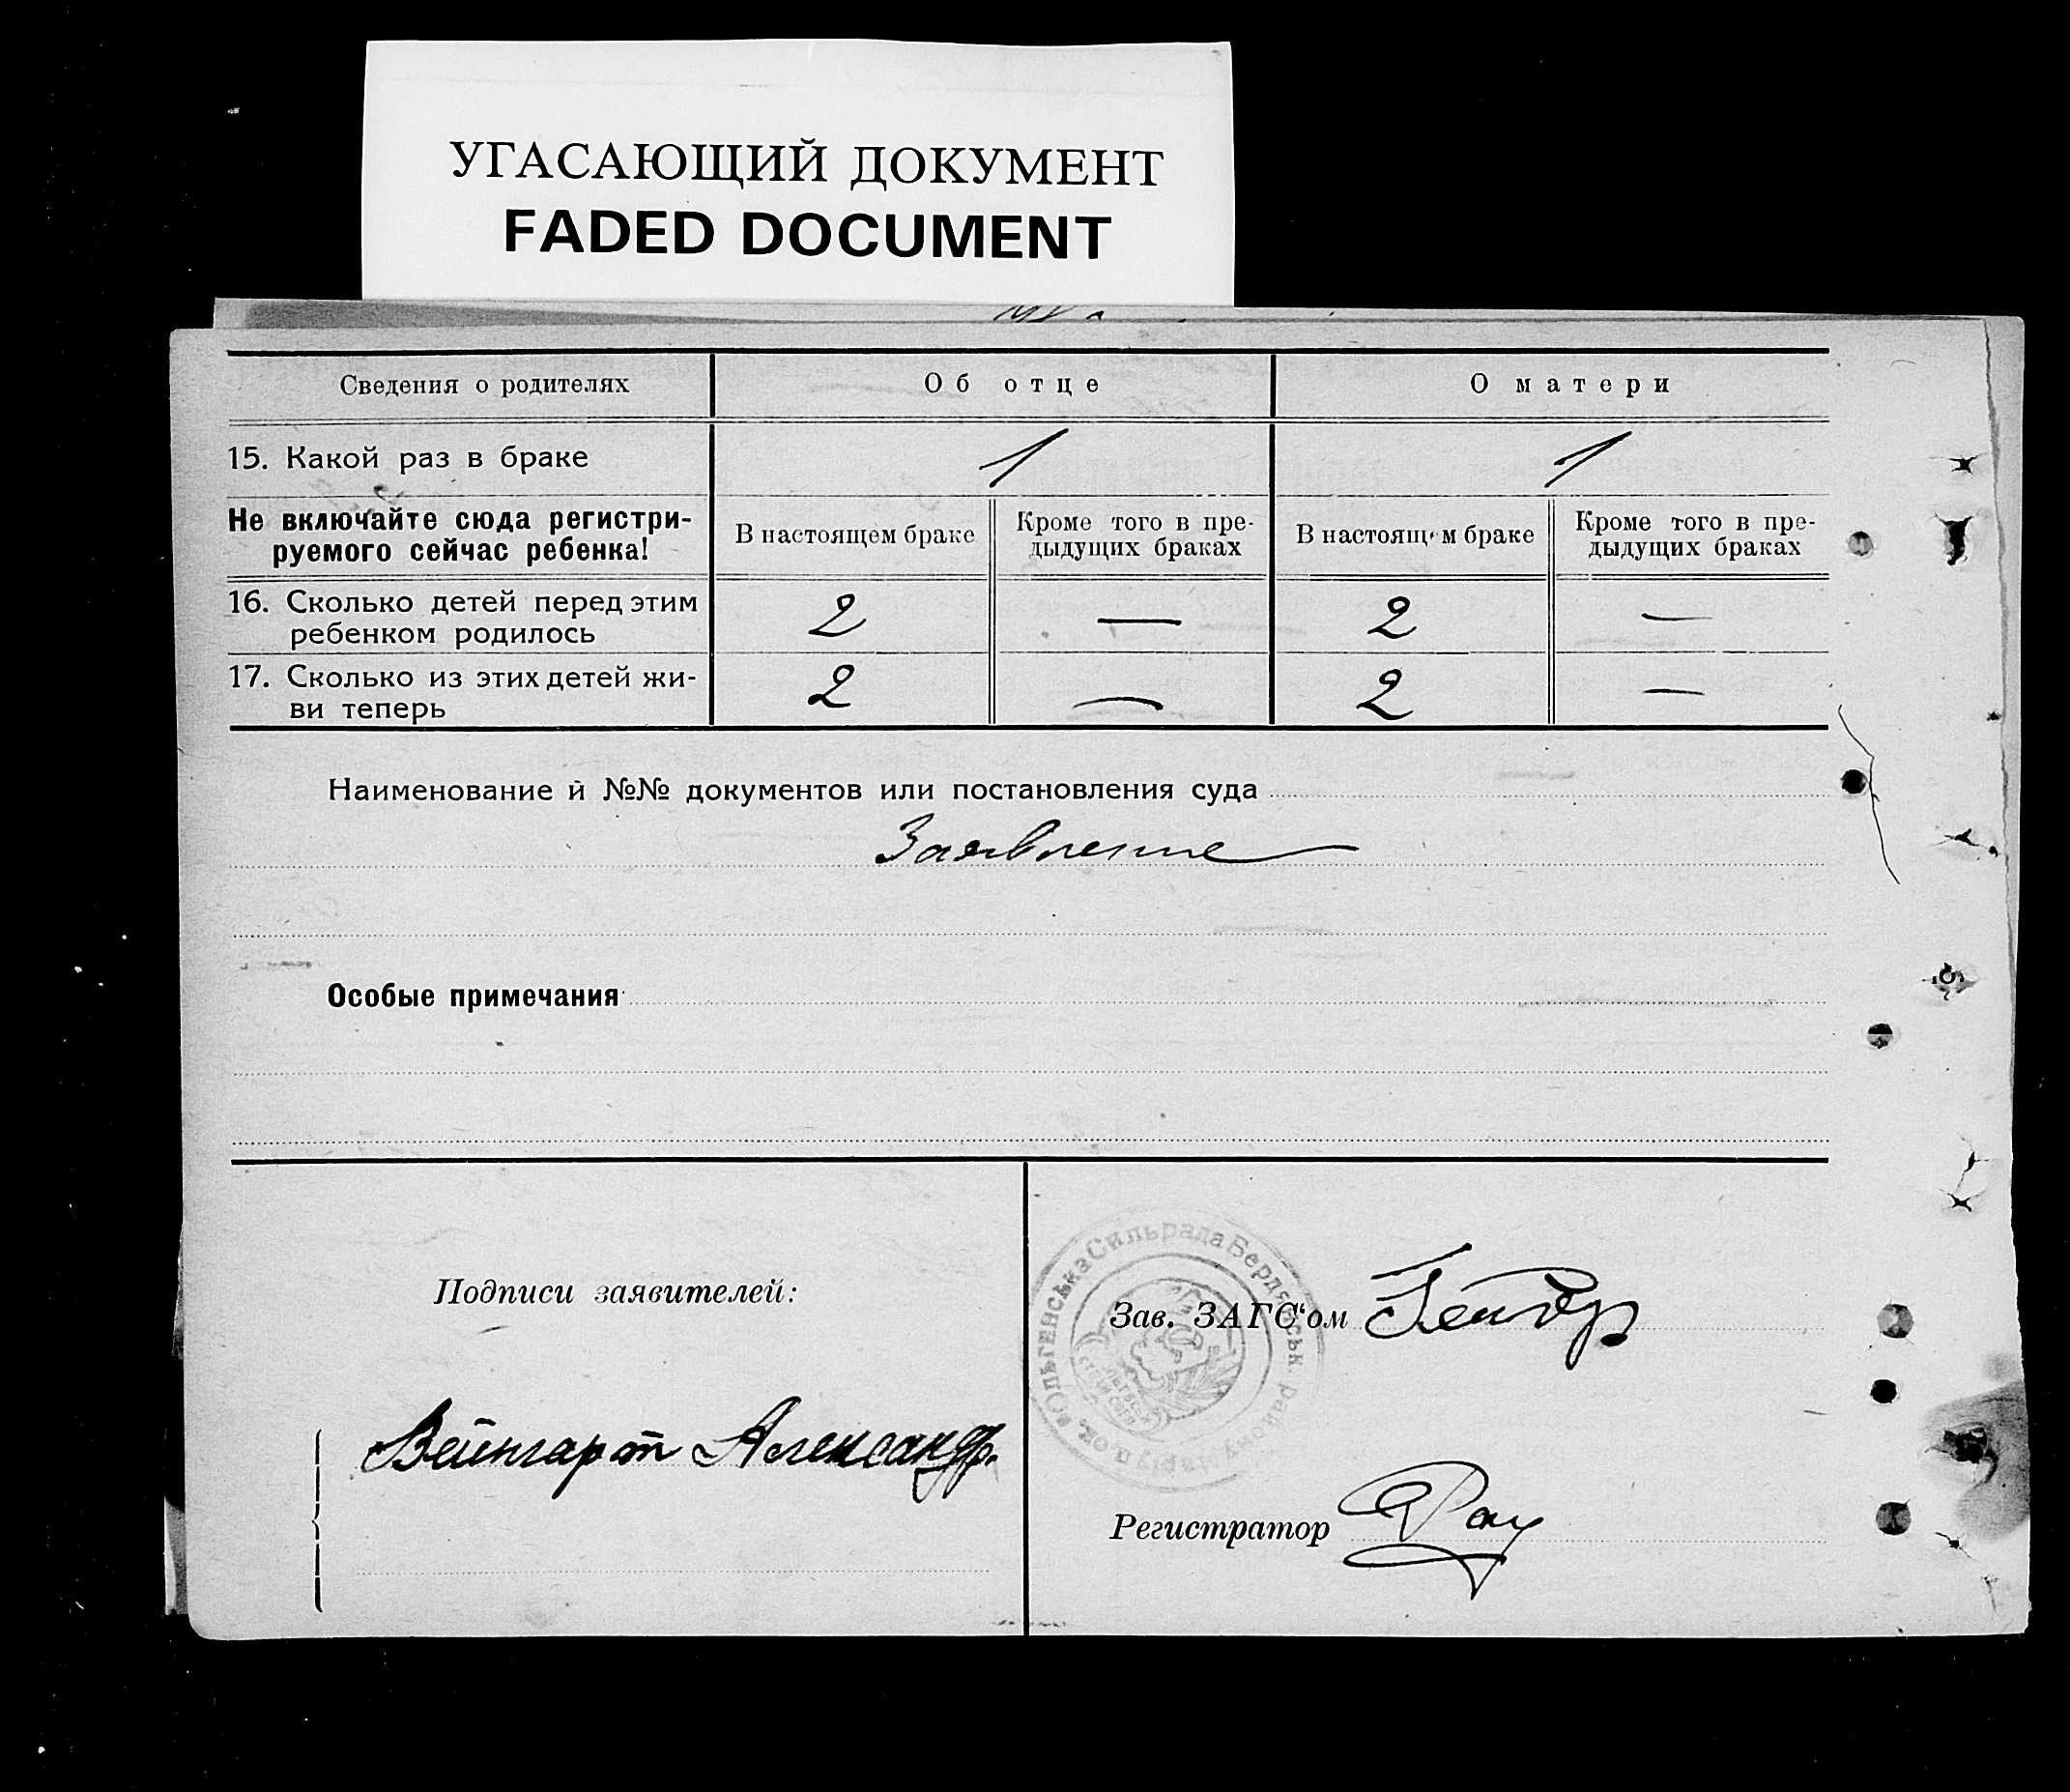 УГАСАЮЩИЙ ДОКУМЕНТ
FADED DOCUMENT
Сведения о родителях
Об отце
О матери
15. Какой раз в браке
1
1
Не включайте сюда регистри-
руемого сейчас ребенка!
В настоящем браке
Кроме того в пре-
дыдущих браках
В настоящем браке
Кроме того в пре-
дыдущих браках
16. Сколько детей перед этим
ребенком родилось
2
—
2
—
17. Сколько из этих детей жи-
ви теперь
2
—
2
—
Наименование й №№ документов или постановления суда
Заявление
Особые примечания
Подписи заявителей:
Вейнгарт Александр.
Ольгенська Сильрада Бердянськ. району Маріуп. ок.
Зав. ЗАГС'ом
Регистратор